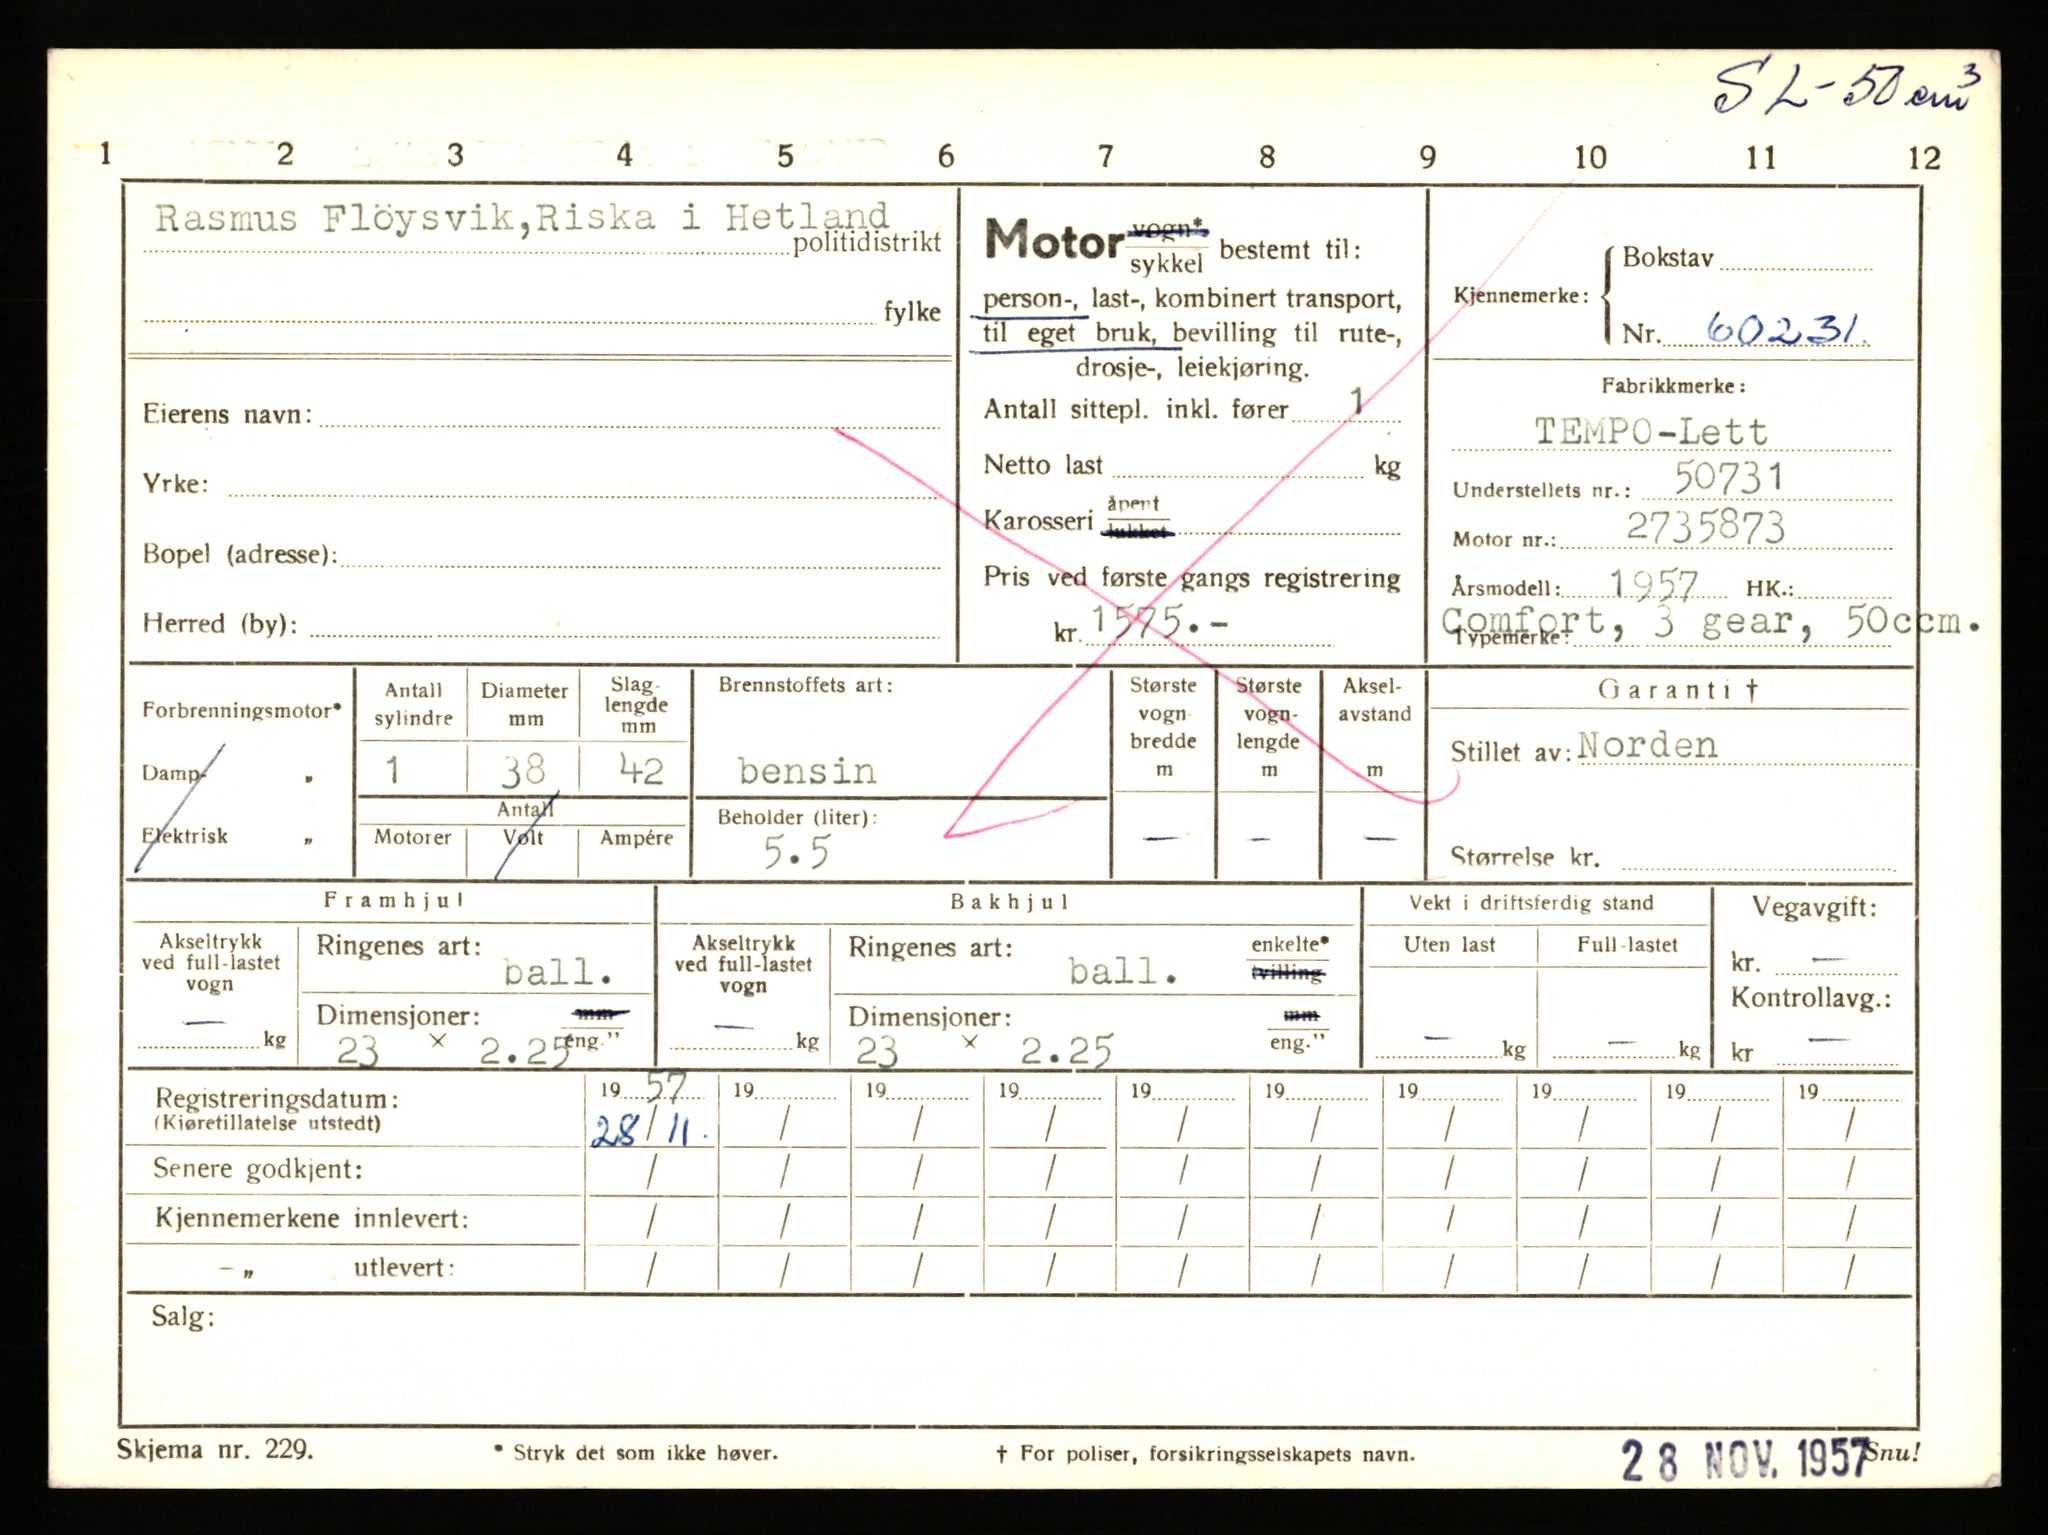 SL-50cm³
1 2 3 4 5 6 7 8 9 10 11 12
Rasmus Flöysvik,Riska i Hetland
politidistrikt
fylke
Eierens navn:
Yrke:
Bopel (adresse):
Herred (by):
Motor vogn* sykkel bestemt til:
person-, last-, kombinert transport,
til eget bruk, bevilling til rute-,
drosje-, leiekjøring.
Antall sittepl. inkl. fører 1
Netto last kg
Karosseri åpent lukket
Pris ved første gangs registrering
kr. 1575.-
Kjennemerke: Bokstav
Nr. 60231.
Fabrikkmerke:
TEMPO-Lett
Understellets nr.: 50731
Motor nr.: 2735873
Årsmodell: 1957 HK.:
Typemerke: Comfort, 3 gear, 50ccm.
Forbrenningsmotor*
Damp- „
Elektrisk „
Antall sylindre
Diameter mm
Slag-lengde mm
1 38 42
Antall
Motorer Volt Ampére
Brennstoffets art:
bensin
Beholder (liter):
5.5
Største vogn bredde m
Største vogn-lengde m
Aksel-avstand m
— — —
Garanti †
Stillet av: Norden
Størrelse kr.
Framhjul
Akseltrykk ved full-lastet vogn
— kg
Ringenes art:
ball.
Dimensjoner: mm eng."
23 × 2.25
Bakhjul
Akseltrykk ved full-lastet vogn
— kg
Ringenes art: enkelte* tvilling
ball.
Dimensjoner: mm eng."
23 × 2.25
Vekt i driftsferdig stand
Uten last Full-lastet
— kg — kg
Vegavgift:
kr. —
Kontrollavg.:
kr —
Registreringsdatum: 19 57 19 19 19 19 19 19 19 19 19
(Kjøretillatelse utstedt) 28/11. / / / / / / / / /
Senere godkjent: / / / / / / / / / /
Kjennemerkene innlevert: / / / / / / / / / /
–„ utlevert: / / / / / / / / / /
Salg:
Skjema nr. 229. * Stryk det som ikke høver. † For poliser, forsikringsselskapets navn. 28 NOV. 1957 Snu!